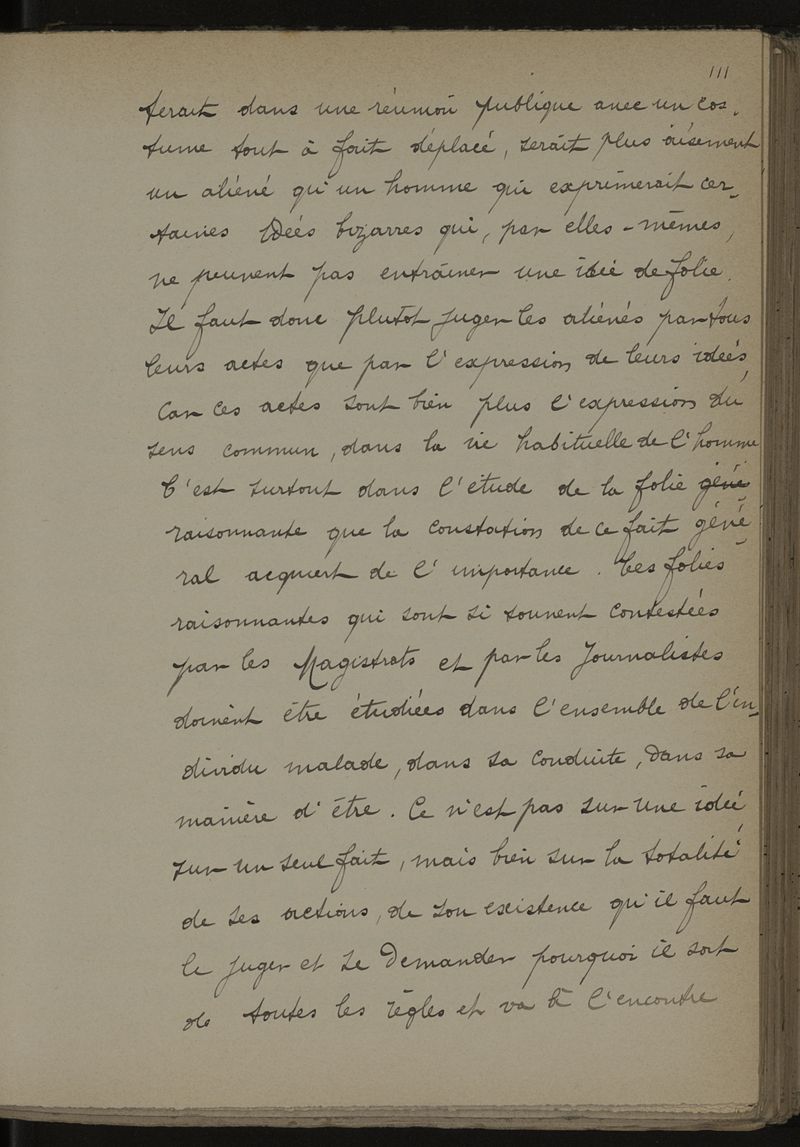 111
terait dans une réunion publique avec un cos-
tume tout à fait déplacé, serait plus aisement
un aliéné qu'un homme qui exprimerait cer-
taines idées bizarres qui, par elles-mêmes,
ne peuvent pas entraîner une idée de folie.
Il faut donc plutôt juger les aliénés par tous
leurs actes que par l'expression de leurs idées,
car ces actes sont bien plus l'expression du
sens commun, dans la vie habituelle de l'homme
C'est surtout dans l'étude de la folie géné
raisonnante que la constation de ce fait géné-
ral acquiert de l'importance. Les folies
raisonnantes qui sont si souvent contestées
par les Magistrats et par les Journalistes
doivent être étudiées dans l'ensemble de l'in-
dividu malade, dans sa conduite, dans sa
manière d'être. Ce n'est pas sur une idée,
sur un seul fait, mais bien sur la totalité
de ses actions, de son existence qu'il faut
le juger et se demander pourquoi il sort
de toutes les règles et va à l'encontre